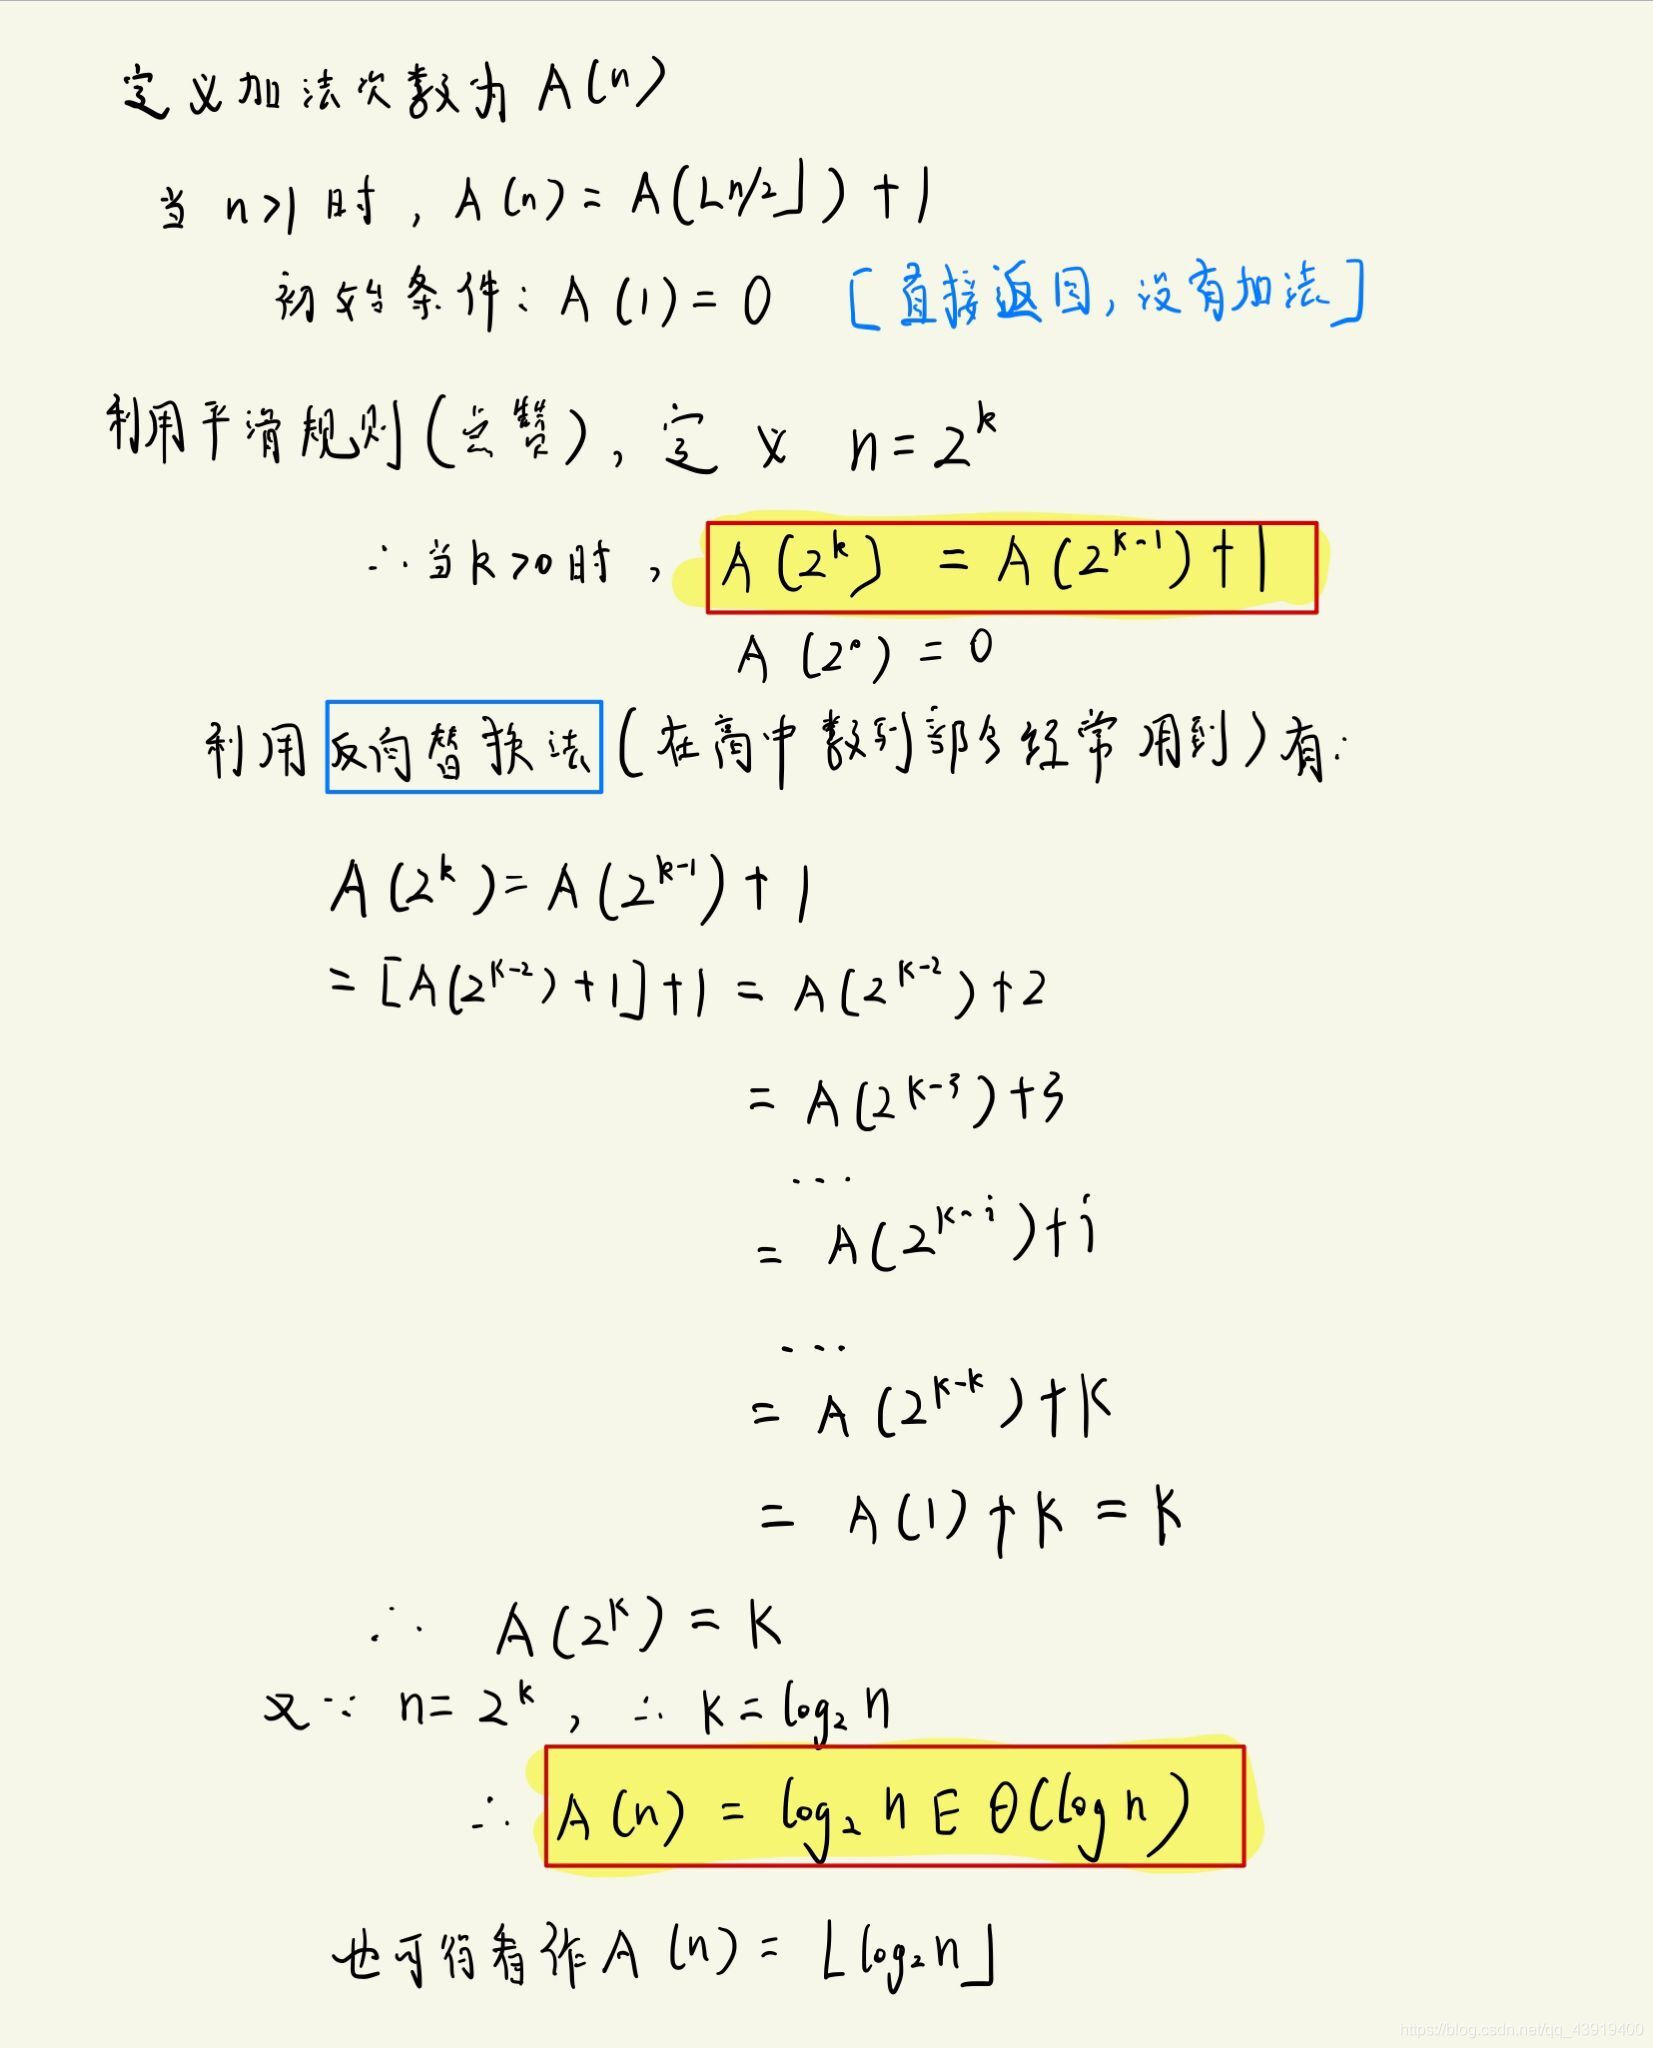 定义加法次数为 A(n)
当 n>1 时, A(n) = A(⌊n/2⌋) + 1
初始条件: A(1) = 0 [直接返回, 没有加法]
利用平滑规则(点赞), 定义 n = 2^k
∴ 当 k>0 时, A(2^k) = A(2^(k-1)) + 1
A(2^0) = 0
利用反向替换法(在高中数列部分经常用到)有:
A(2^k) = A(2^(k-1)) + 1
= [A(2^(k-2)) + 1] + 1 = A(2^(k-2)) + 2
= A(2^(k-3)) + 3
...
= A(2^(k-i)) + i
...
= A(2^(k-k)) + k
= A(1) + k = k
∴ A(2^k) = k
又∵ n = 2^k, ∴ k = log₂ n
∴ A(n) = log₂ n ∈ Θ(log n)
也可得看作 A(n) = ⌊log₂n⌋
https://blog.csdn.net/qq_43919400